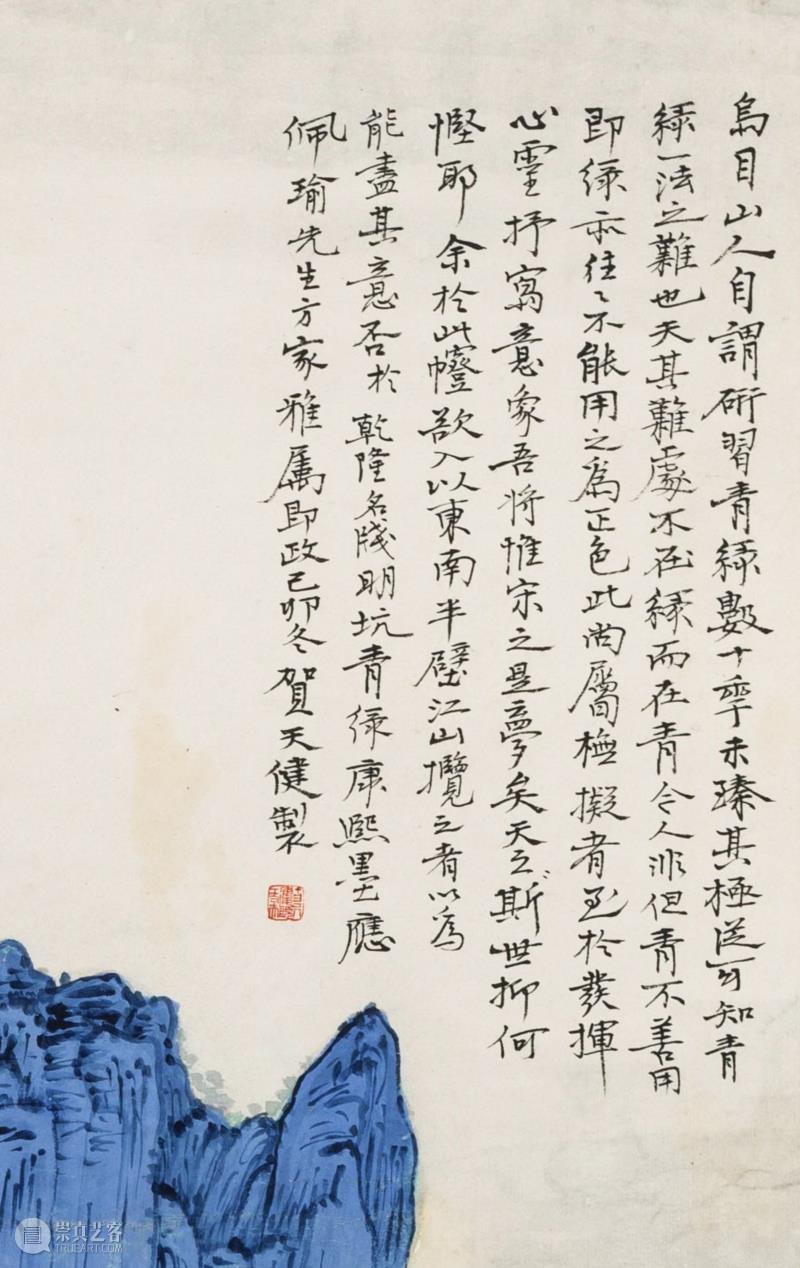 烏目山人自謂研習青綠數十年未臻其極從可知青
綠一法之難也夫其難處不在綠而在青令人非但青不善用
即綠亦往〻不能用之為正色此尚屬橅擬者至於發揮
心靈抒寫意象吾將惟宋之是夢矣天之斯世抑何
慳耶余於此幛欲入以東南半壁江山攬之者以為
能盡其意否於乾隆名牋明坑青綠康熙墨應
佩瑜先生方家雅属即政己卯冬賀天健製
崇真艺客
TRUEART.COM